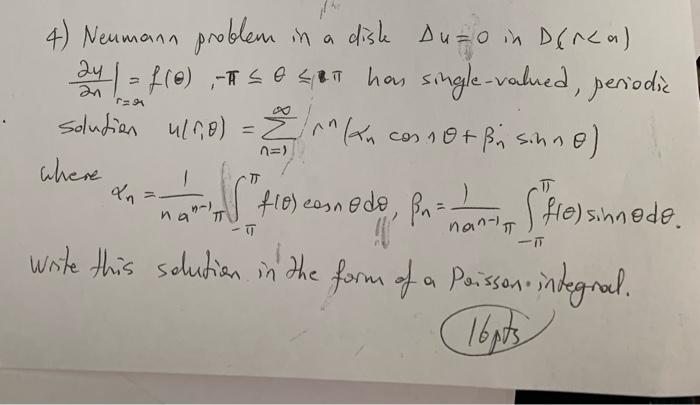 4) Neumann problem in a disk Δu=0 in D(r<a)
∂u/∂n|r=a = f(θ), -π ≤ θ ≤ π has single-valued, periodic
solution u(r,θ) = ∑_{n=1}^{∞} r^n (αn cos nθ + βn sin nθ)
where αn = 1/(n a^{n-1} π) ∫_{-π}^{π} f(θ) cos nθ dθ, βn = 1/(n a^{n-1} π) ∫_{-π}^{π} f(θ) sin nθ dθ.
Write this solution in the form of a Poisson integral.
16pts